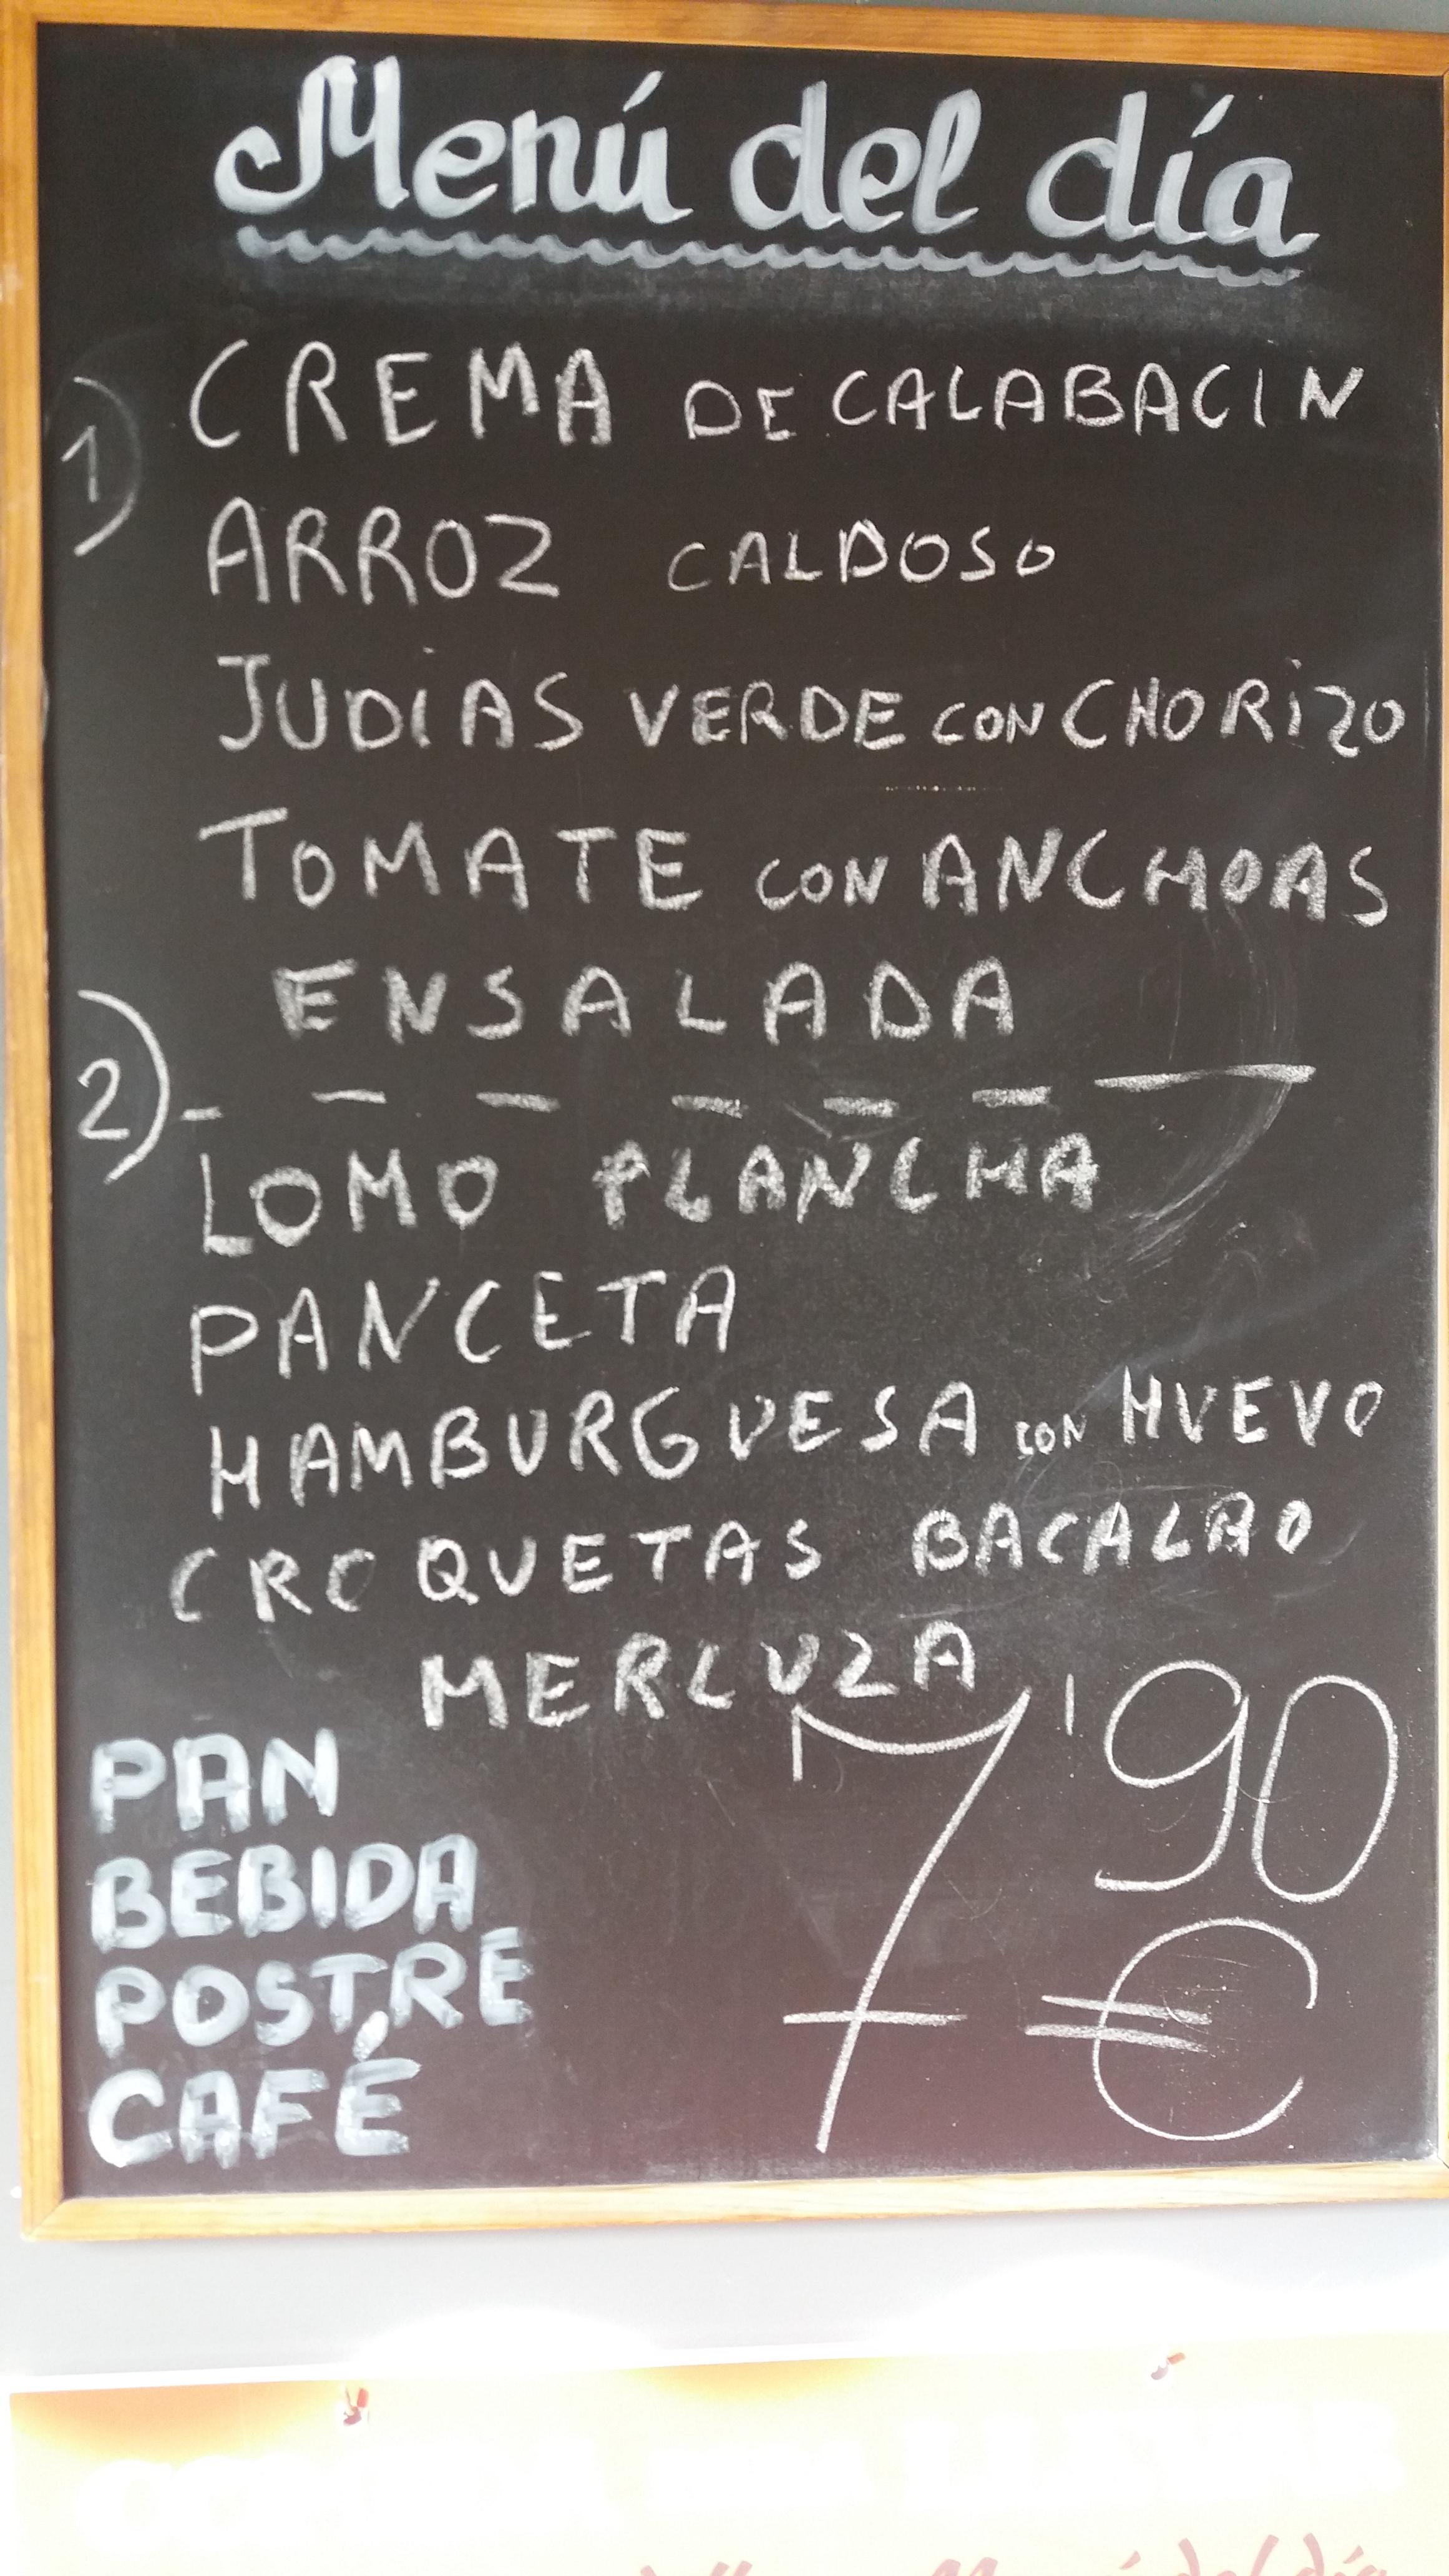 Menú del día
1) CREMA DE CALABACIN
ARROZ CALDOSO
JUDíAS VERDE CON CHORIZO
TOMATE CON ANCHOAS
ENSALADA
2)
LOMO PLANCHA
PANCETA
HAMBURGUESA CON HUEVO
CROQUETAS BACALAO
MERLUZA
7'90
€
PAN
BEBIDA
POSTRE
CAFÉ
Menú del día